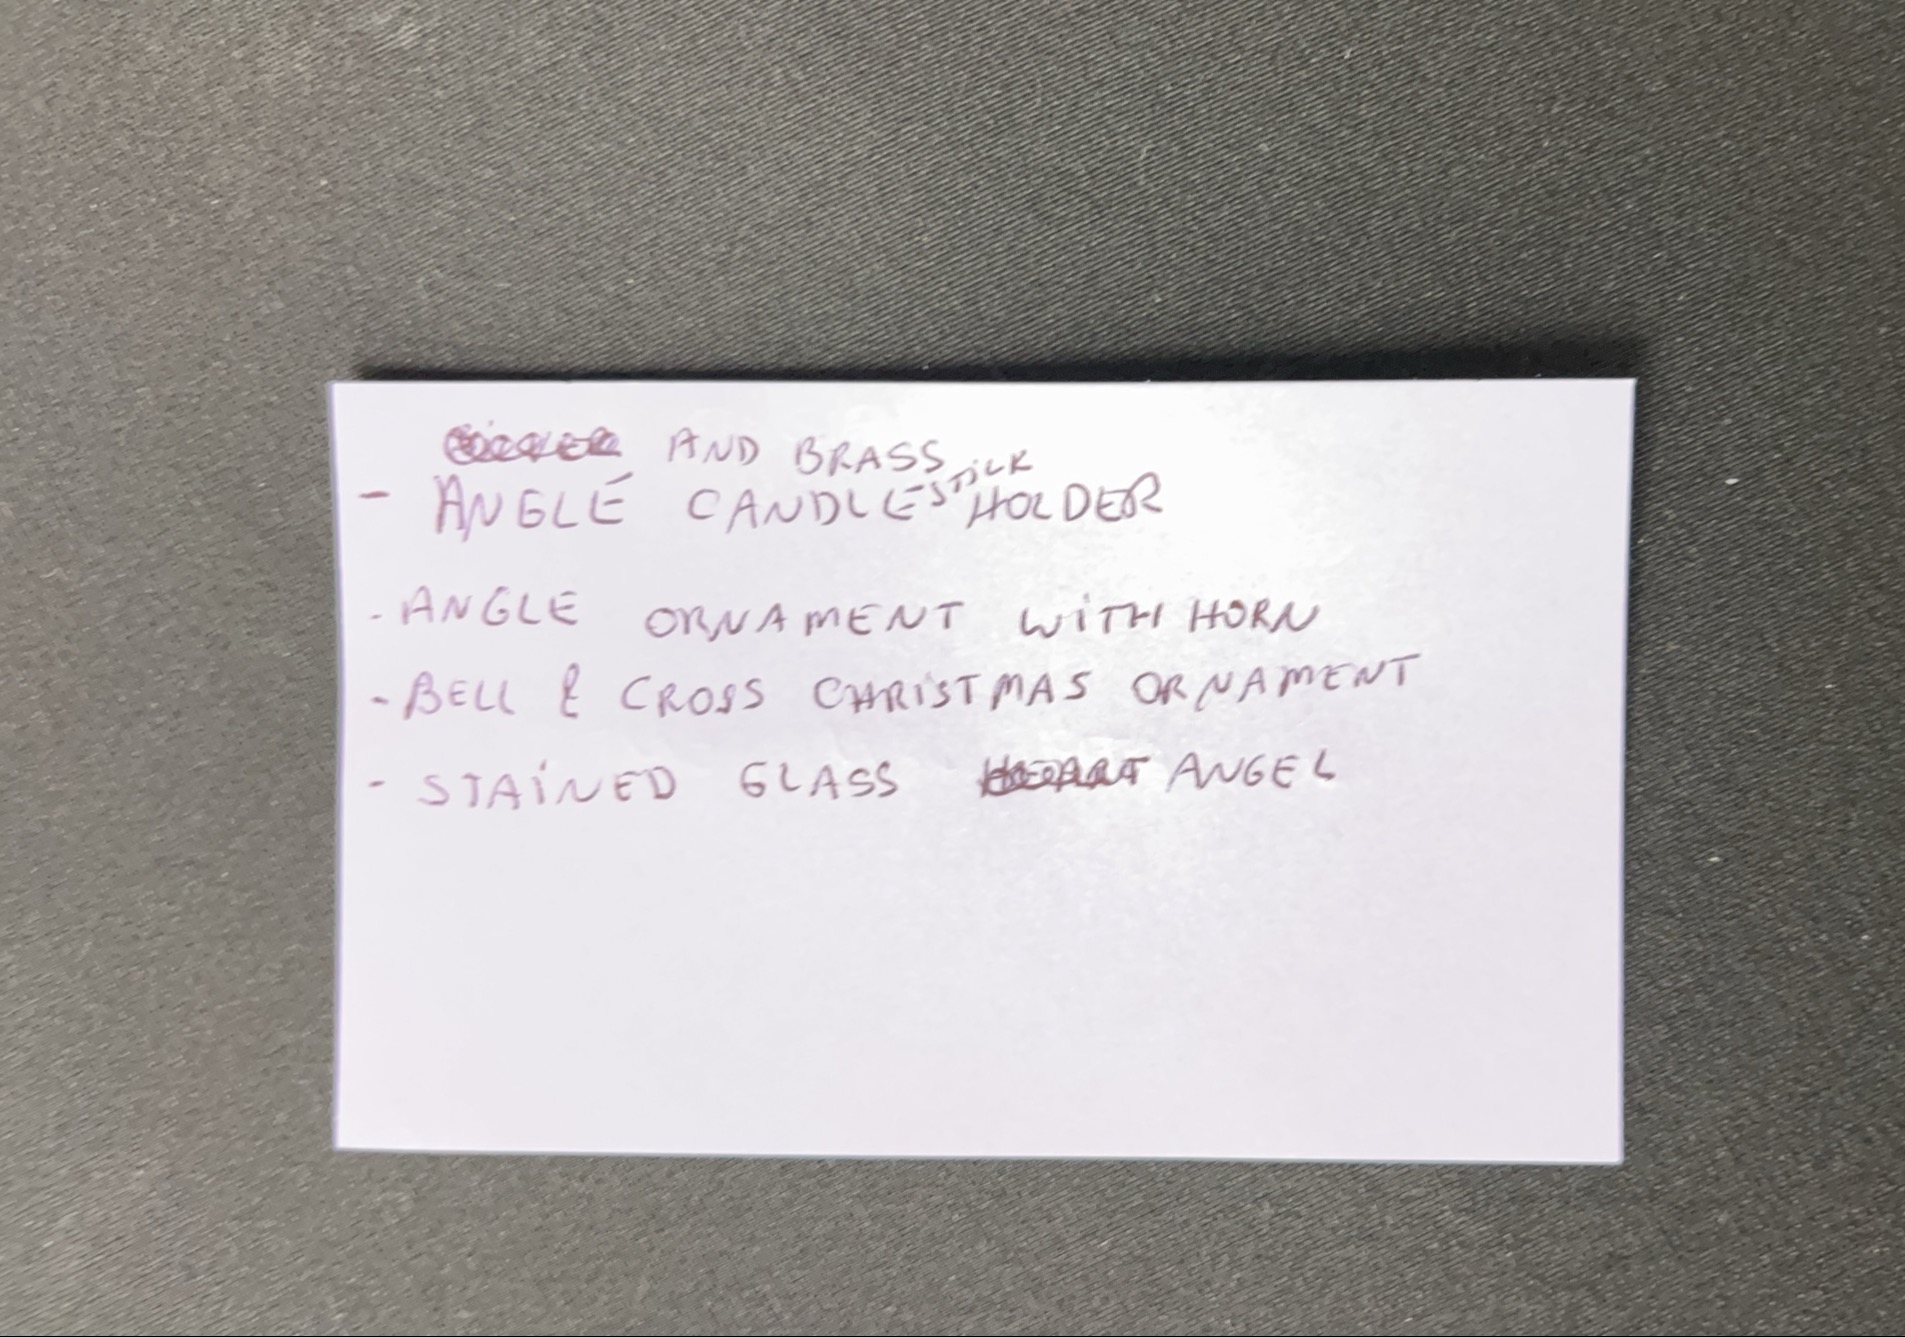 AND BRASS
- ANGLE CANDLESTICK HOLDER
- ANGLE ORNAMENT WITH HORN
- BELL & CROSS CHRISTMAS ORNAMENT
- STAINED GLASS ANGEL